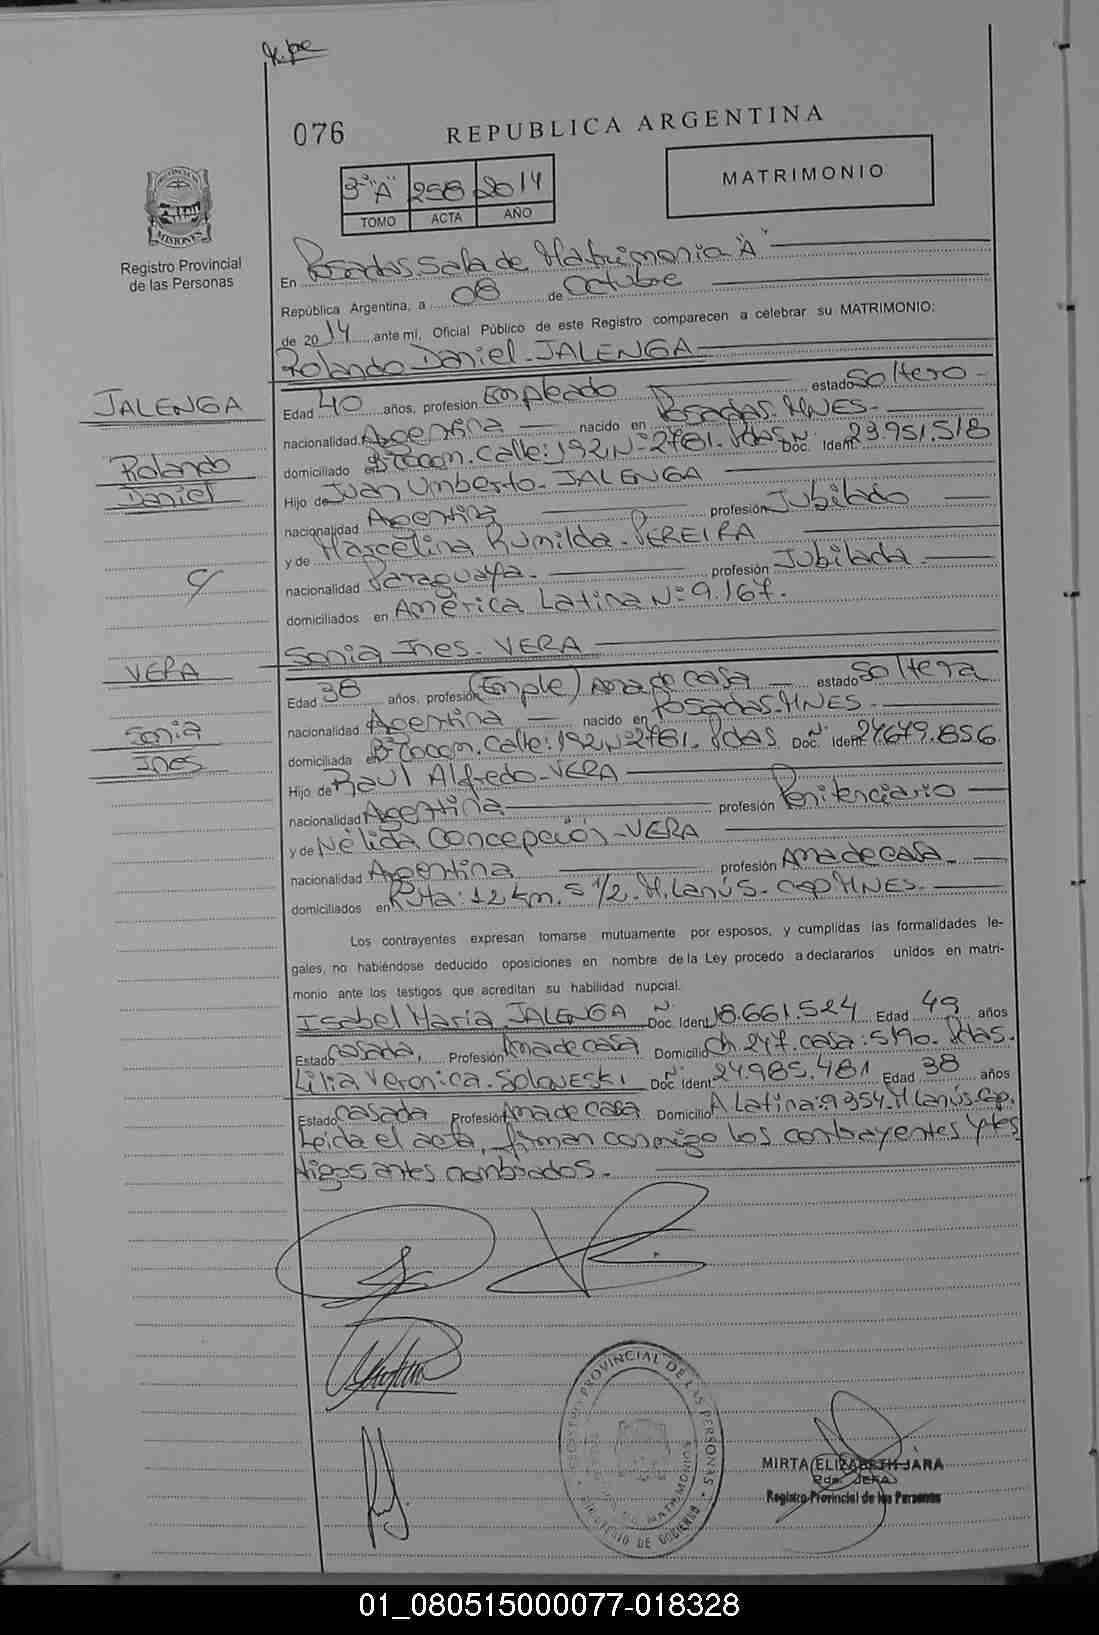 076
REPUBLICA ARGENTINA
3º "A" 258 2014
TOMO ACTA AÑO
MATRIMONIO
MISIONES
Registro Provincial
de las Personas
En Posadas Sala de Matrimonia "A"
República Argentina, a 08 de Octubre
de 2014 ante mí, Oficial Público de este Registro comparecen a celebrar su MATRIMONIO:
Rolando Daniel - JALENGA
JALENGA
Rolando
Daniel
Edad 40 años, profesión Empleado estado Soltero -
nacionalidad Argentina nacido en Posadas. MNES -
domiciliado en Bº Cocom. Calle: 192 Nº 2781. Pdas Doc. Nº Ident. 23.951.518
Hijo de Juan Umberto - JALENGA
nacionalidad Argentina profesión Jubilado
y de Marcelina Rumilda - PEREIRA
nacionalidad Paraguaya - profesión Jubilada -
domiciliados en América Latina Nº 9.167.
Sonia Ines - VERA
VERA
Sonia
Ines
Edad 38 años, profesión (Emple) Ama de casa estado Soltera
nacionalidad Argentina nacido en Posadas - MNES -
domiciliada en Bº Cocom. Calle: 192 Nº 2781. Pdas Doc. Nº Ident. 24679.856
Hijo de Raul Alfredo - VERA
nacionalidad Argentina profesión Penitenciario
y de Nélida Concepción - VERA
nacionalidad Argentina profesión Ama de casa -
domiciliados en Ruta: 12 km. 5 1/2. V. Lanús - Cap MNES -
Los contrayentes expresan tomarse mutuamente por esposos, y cumplidas las formalidades le-
gales, no habiéndose deducido oposiciones en nombre de la Ley procedo a declararlos unidos en matri-
monio ante los testigos que acreditan su habilidad nupcial.
Isabel Maria JALENGA Doc. Nº Ident 18.661.524 Edad 49 años
Estado casada, Profesión Ama de casa Domicilio Ch. 247. casa: 5190. Pdas.
Lilia Veronica - Soloweski Doc. Nº Ident 24985.481 Edad 38 años
Estado casada Profesión Ama de casa Domicilio A Latina: 9354. V Lanús. Cap.
Leida el acta, firman conmigo los contrayentes y tes
tigos antes nombrados.
REGISTRO PROVINCIAL DE LAS PERSONAS
MINISTERIO DE GOBIERNO
MIRTA ELIZABETH JARA
Registro Provincial de las Personas
01_080515000077-018328